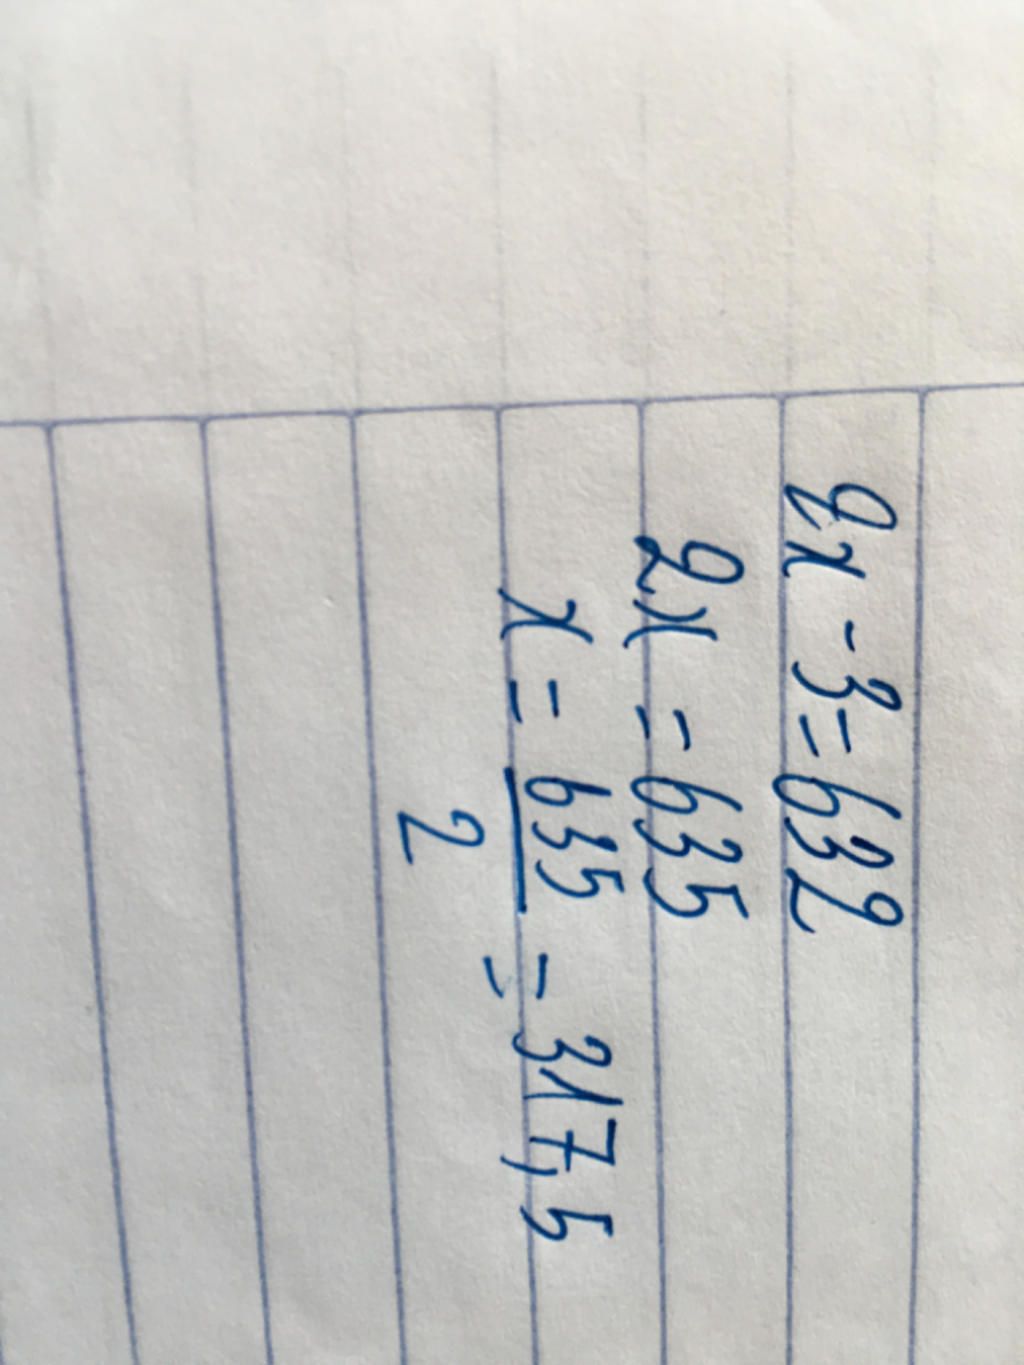 2x - 3 = 632
2x = 635
x = 635/2 = 317,5